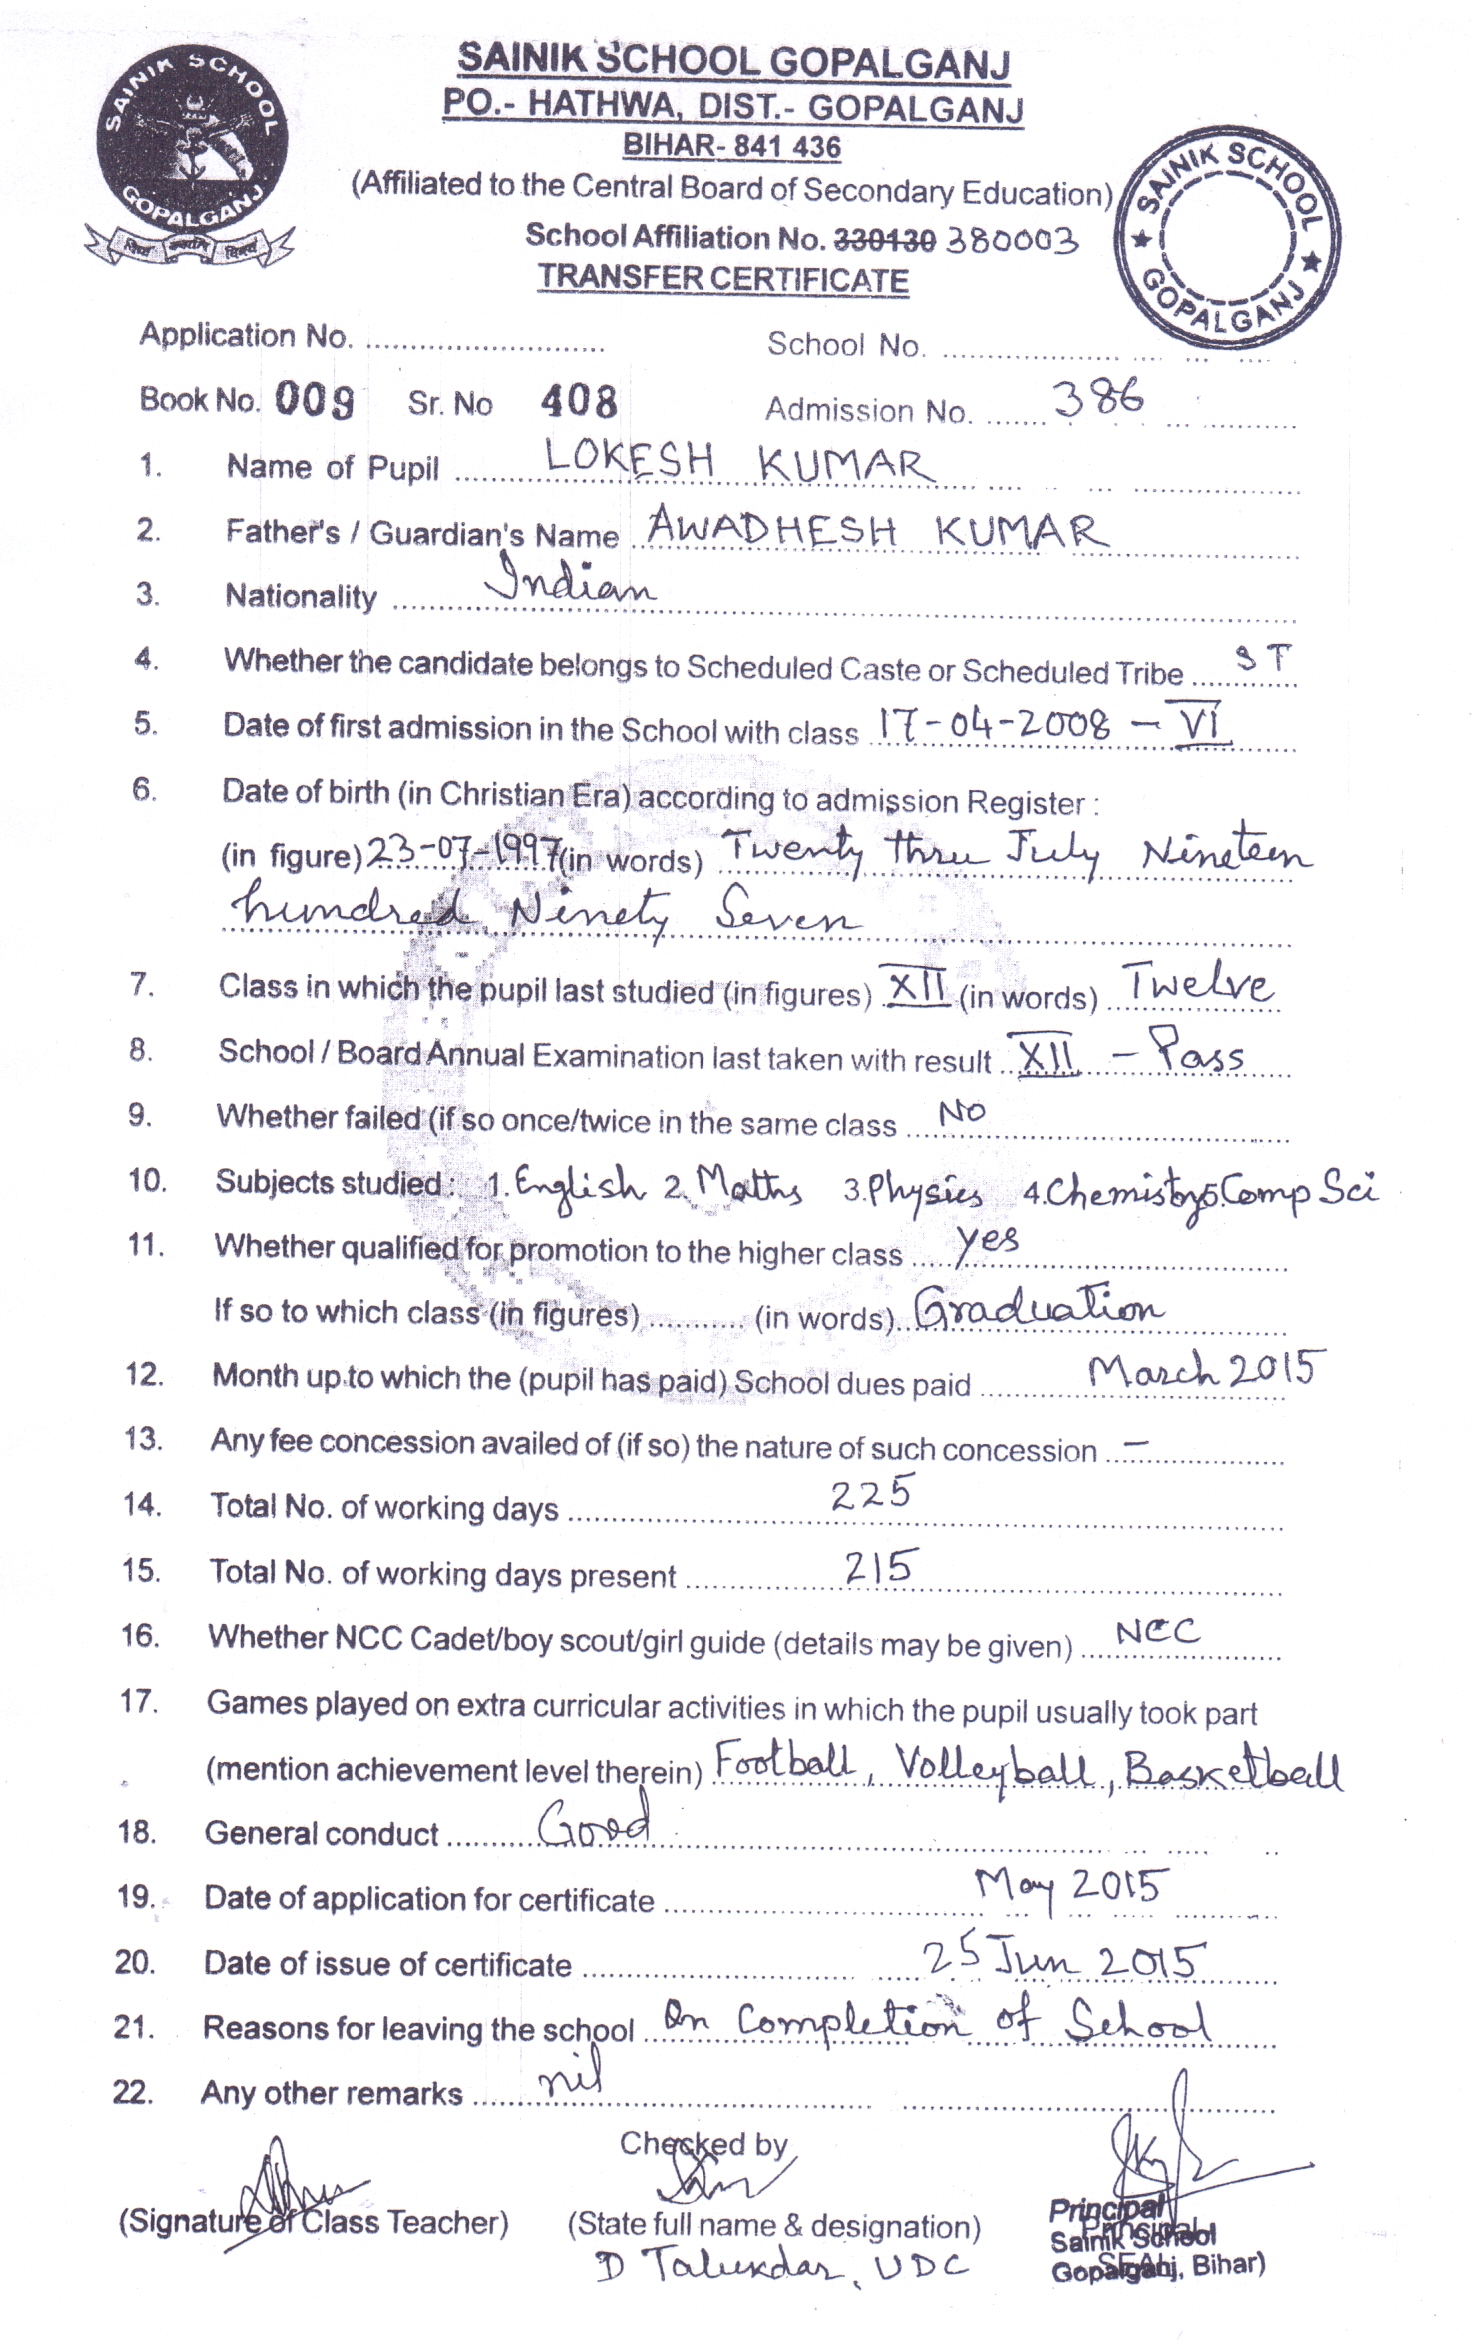 SAINIK SCHOOL GOPALGANJ
PO.- HATHWA, DIST.- GOPALGANJ
BIHAR- 841 436
(Affiliated to the Central Board of Secondary Education)
School Affiliation No. 330130 380003
TRANSFER CERTIFICATE
SAINIK SCHOOL
GOPALGANJ
SAINIK SCHOOL
GOPALGANJ
Application No. School No.
Book No. 009 Sr. No 408 Admission No. 386
1. Name of Pupil LOKESH KUMAR
2. Father's / Guardian's Name AWADHESH KUMAR
3. Nationality Indian
4. Whether the candidate belongs to Scheduled Caste or Scheduled Tribe ST
5. Date of first admission in the School with class 17-04-2008 - VI
6. Date of birth (in Christian Era) according to admission Register :
(in figure) 23-07-1997 (in words) Twenty thru July Nineteen
hundred Ninety Seven
7. Class in which the pupil last studied (in figures) XII (in words) Twelve
8. School / Board Annual Examination last taken with result XII - Pass
9. Whether failed (if so once/twice in the same class No
10. Subjects studied : 1. English 2. Maths 3. Physics 4. Chemistry 5. Comp Sci
11. Whether qualified for promotion to the higher class yes
If so to which class (in figures) (in words) Graduation
12. Month up to which the (pupil has paid) School dues paid March 2015
13. Any fee concession availed of (if so) the nature of such concession –
14. Total No. of working days 225
15. Total No. of working days present 215
16. Whether NCC Cadet/boy scout/girl guide (details may be given) NCC
17. Games played on extra curricular activities in which the pupil usually took part
(mention achievement level therein) Football, Volleyball, Basketball
18. General conduct Good
19. Date of application for certificate May 2015
20. Date of issue of certificate 25 Jun 2015
21. Reasons for leaving the school On Completion of School
22. Any other remarks nil
Checked by
(Signature of Class Teacher) (State full name & designation) Principal
D Talukdar, UDC
Principal
Sainik School
SEAL
Gopalganj, Bihar)